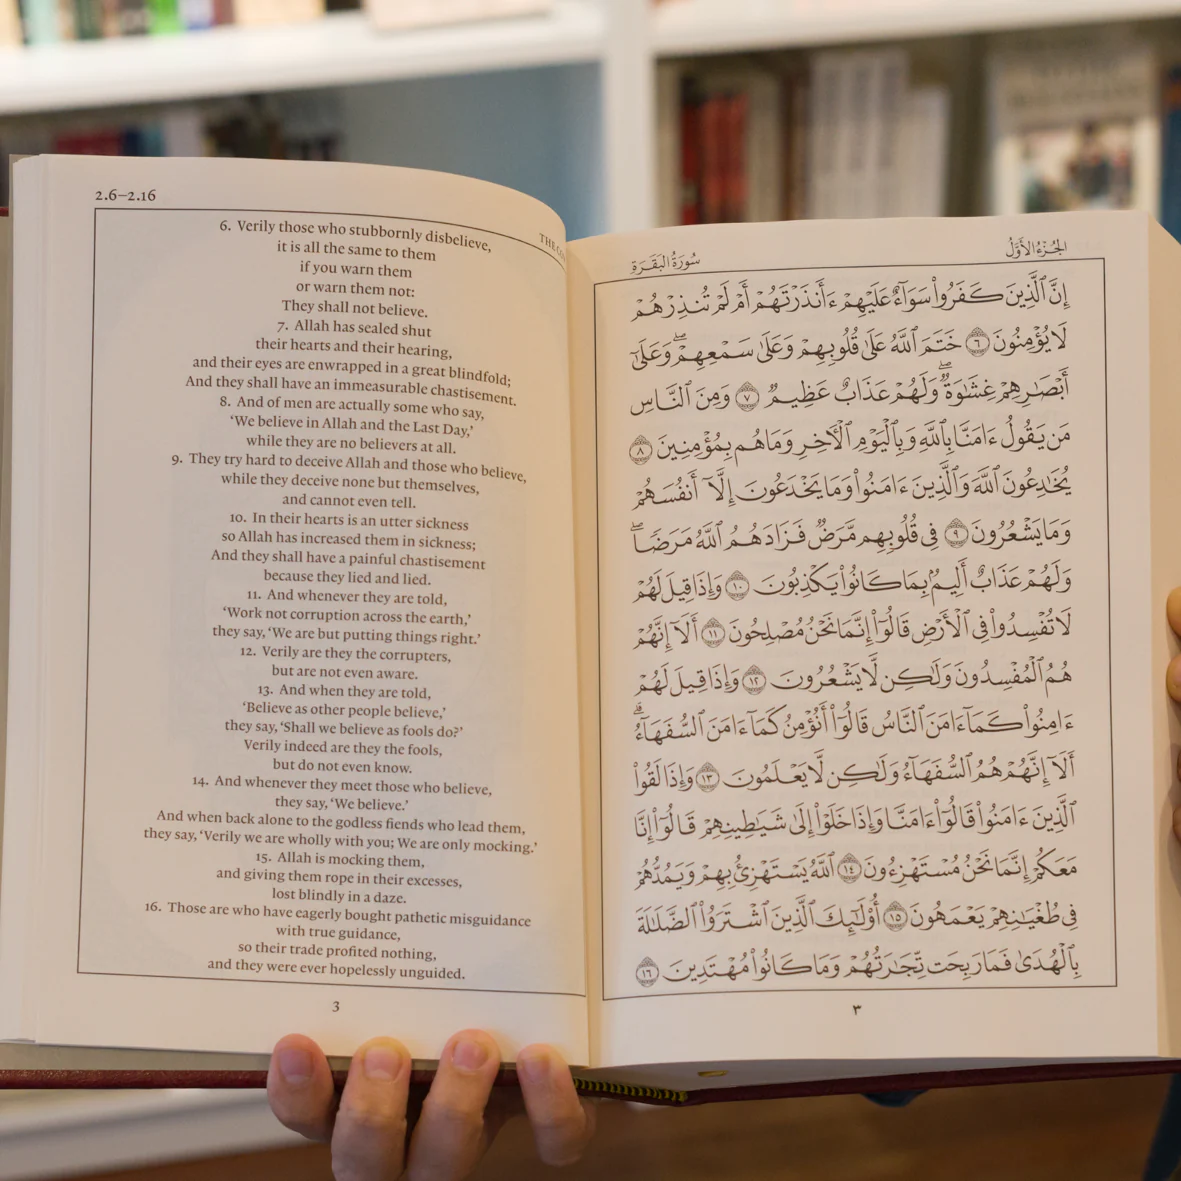 2.6–2.16
6. Verily those who stubbornly disbelieve,
it is all the same to them
if you warn them
or warn them not:
They shall not believe.
7. Allah has sealed shut
their hearts and their hearing,
and their eyes are enwrapped in a great blindfold;
And they shall have an immeasurable chastisement.
8. And of men are actually some who say,
‘We believe in Allah and the Last Day,’
while they are no believers at all.
9. They try hard to deceive Allah and those who believe,
while they deceive none but themselves,
and cannot even tell.
10. In their hearts is an utter sickness
so Allah has increased them in sickness;
And they shall have a painful chastisement
because they lied and lied.
11. And whenever they are told,
‘Work not corruption across the earth,’
they say, ‘We are but putting things right.’
12. Verily are they the corrupters,
but are not even aware.
13. And when they are told,
‘Believe as other people believe,’
they say, ‘Shall we believe as fools do?’
Verily indeed are they the fools,
but do not even know.
14. And whenever they meet those who believe,
they say, ‘We believe.’
And when back alone to the godless fiends who lead them,
they say, ‘Verily we are wholly with you; We are only mocking.’
15. Allah is mocking them,
and giving them rope in their excesses,
lost blindly in a daze.
16. Those are who have eagerly bought pathetic misguidance
with true guidance,
so their trade profited nothing,
and they were ever hopelessly unguided.
3
الجُزْءُ الأَوَّلُ
سُورَةُ البَقَرَةِ
إِنَّ ٱلَّذِينَ كَفَرُوا۟ سَوَآءٌ عَلَيْهِمْ ءَأَنذَرْتَهُمْ أَمْ لَمْ تُنذِرْهُمْ
لَا يُؤْمِنُونَ ٦ خَتَمَ ٱللَّهُ عَلَىٰ قُلُوبِهِمْ وَعَلَىٰ سَمْعِهِمْۖ وَعَلَىٰٓ
أَبْصَٰرِهِمْ غِشَٰوَةٌۖ وَلَهُمْ عَذَابٌ عَظِيمٌ ٧ وَمِنَ ٱلنَّاسِ
مَن يَقُولُ ءَامَنَّا بِٱللَّهِ وَبِٱلْيَوْمِ ٱلْـَٔاخِرِ وَمَا هُم بِمُؤْمِنِينَ ٨
يُخَٰدِعُونَ ٱللَّهَ وَٱلَّذِينَ ءَامَنُوا۟ وَمَا يَخْدَعُونَ إِلَّآ أَنفُسَهُمْ
وَمَا يَشْعُرُونَ ٩ فِى قُلُوبِهِم مَّرَضٌ فَزَادَهُمُ ٱللَّهُ مَرَضًاۖ
وَلَهُمْ عَذَابٌ أَلِيمٌۢ بِمَا كَانُوا۟ يَكْذِبُونَ ١٠ وَإِذَا قِيلَ لَهُمْ
لَا تُفْسِدُوا۟ فِى ٱلْأَرْضِ قَالُوٓا۟ إِنَّمَا نَحْنُ مُصْلِحُونَ ١١ أَلَآ إِنَّهُمْ
هُمُ ٱلْمُفْسِدُونَ وَلَٰكِن لَّا يَشْعُرُونَ ١٢ وَإِذَا قِيلَ لَهُمْ
ءَامِنُوا۟ كَمَآ ءَامَنَ ٱلنَّاسُ قَالُوٓا۟ أَنُؤْمِنُ كَمَآ ءَامَنَ ٱلسُّفَهَآءُۗ
أَلَآ إِنَّهُمْ هُمُ ٱلسُّفَهَآءُ وَلَٰكِن لَّا يَعْلَمُونَ ١٣ وَإِذَا لَقُوا۟
ٱلَّذِينَ ءَامَنُوا۟ قَالُوٓا۟ ءَامَنَّا وَإِذَا خَلَوْا۟ إِلَىٰ شَيَٰطِينِهِمْ قَالُوٓا۟ إِنَّا
مَعَكُمْ إِنَّمَا نَحْنُ مُسْتَهْزِءُونَ ١٤ ٱللَّهُ يَسْتَهْزِئُ بِهِمْ وَيَمُدُّهُمْ
فِى طُغْيَٰنِهِمْ يَعْمَهُونَ ١٥ أُو۟لَٰٓئِكَ ٱلَّذِينَ ٱشْتَرَوُا۟ ٱلضَّلَٰلَةَ
بِٱلْهُدَىٰ فَمَا رَبِحَت تِّجَٰرَتُهُمْ وَمَا كَانُوا۟ مُهْتَدِينَ ١٦
٣